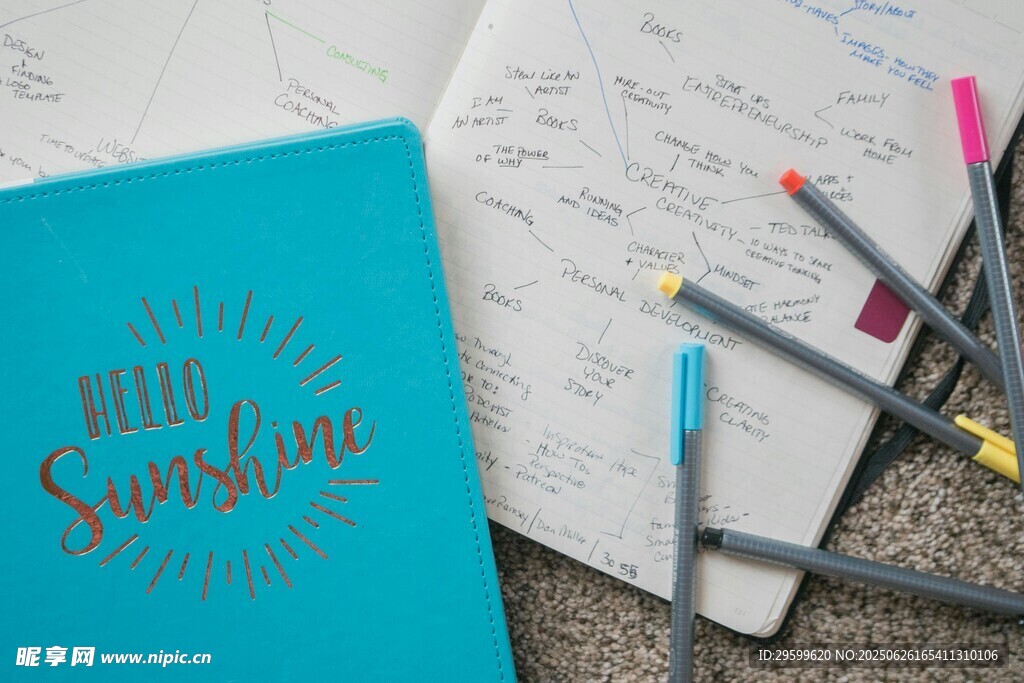 DESIGN
+
FINDING
LOGO
TEMPLATE
CONSULTING
PERSONAL
COACHING
TIME TO UPDATE
WEBSITE
HELLO
Sunshine
STORY/ABOUT
IMAGES - HOW THEY
MAKE YOU FEEL
BOOKS
Steal LIKE AN
ARTIST
I AM
AN ARTIST
BOOKS
THE POWER
OF WHY
CREATIVITY
START UPS
ENTREPRENEURSHIP
FAMILY
WORK FROM
HOME
CHANGE HOW YOU
THINK
CREATIVE
CREATIVITY
APPS +
RUNNING
AND IDEAS
COACHING
TED TALK
10 WAYS TO SPARK
CREATIVE THINKING
CHARACTER
+ VALUES
MINDSET
HARMONY
BALANCE
PERSONAL DEVELOPMENT
BOOKS
DISCOVER
YOUR
STORY
Through
Connecting
TO:
PODCAST
CREATING
CLARITY
Inspiration
HOW TOs
Perspective
Patreon
Ramsey/Dan Miller/
30
55
昵享网 www.nipic.cn
ID:29599620 NO:20250626165411310106